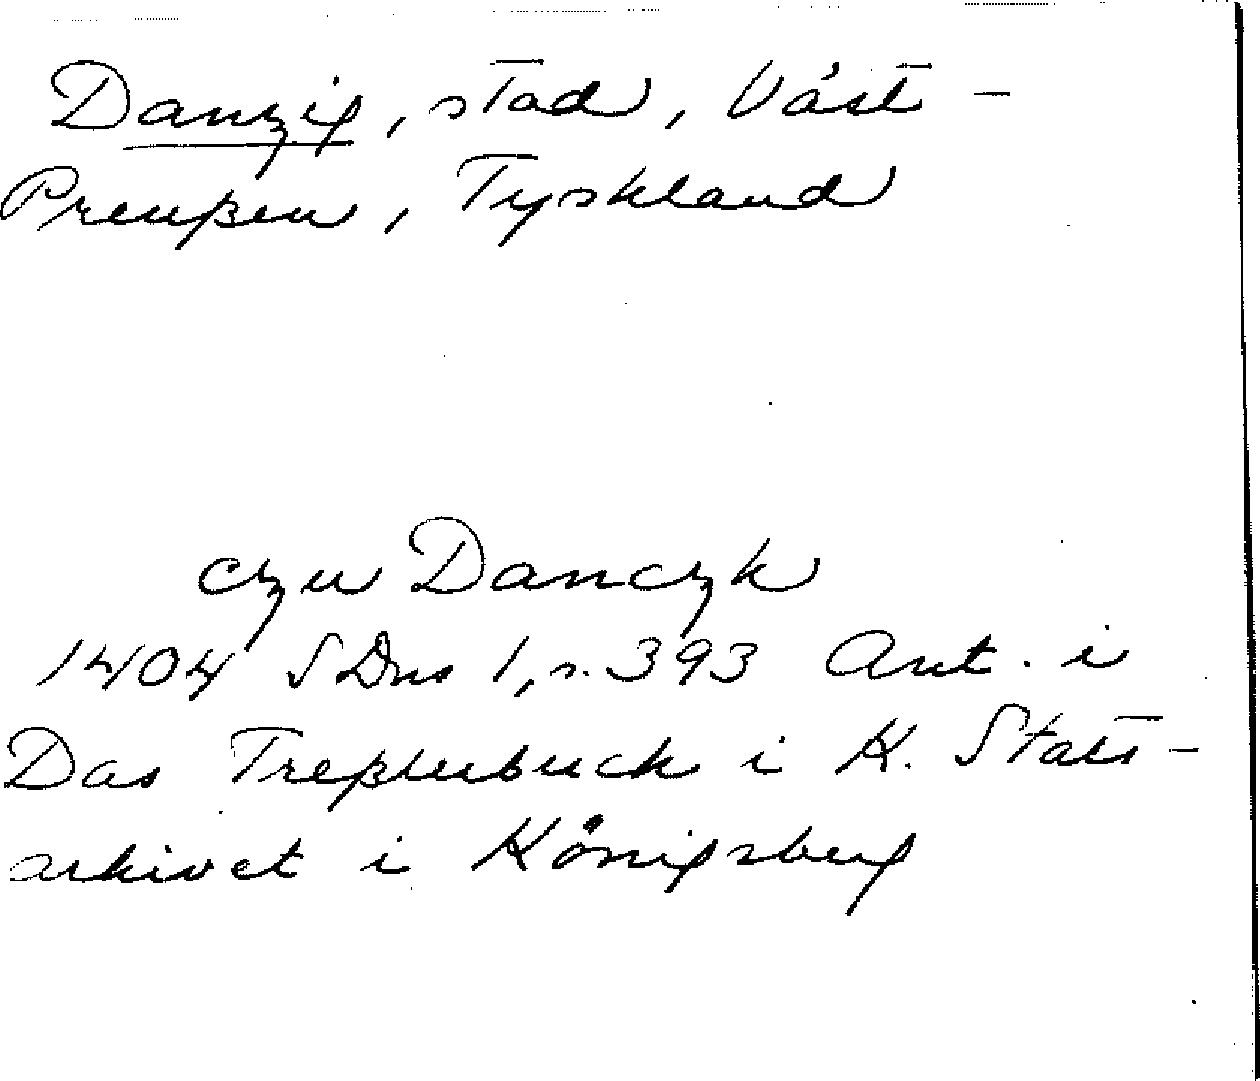 Danzig, stad, Väst-
Preußen, Tyskland
czu Danczk
1404 SDns 1, s. 393 Ant. i
Das Treßlerbuch i K. Stats-
arkivet i Königsberg